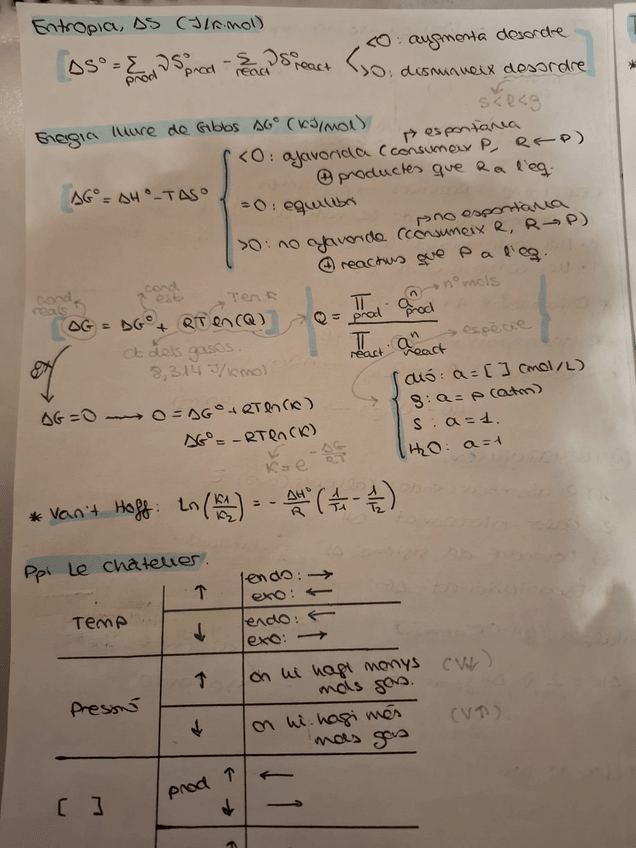 Entropia, ΔS (J/K·mol)
ΔS° = Σprod νS°prod - Σreact νS°react
<0: augmenta desordre
>0: disminueix desordre
s<l<g
Energia lliure de Gibbs ΔG° (KJ/mol)
ΔG° = ΔH° - TΔS°
→ espontània
<0: afavorida (consumeix P, R ← P)
⊕ productes que R a l'eq.
=0: equilibri
→ no espontània
>0: no afavorida (consumeix R, R → P)
⊕ reactius que P a l'eq.
cond reals
cond est.
T en K
ΔG = ΔG° + RT ln(Q)
ct dels gasos.
8,314 J/Kmol
Q = Πprod · aⁿprod / Πreact · aⁿreact
nº mols
espècie
dió: a = [ ] (mol/L)
g: a = p (atm)
s: a = 1.
H2O: a = 1
ΔG = 0 → 0 = ΔG° + RT ln(K)
ΔG° = -RT ln(K)
K = e^(-ΔG/RT)
* Van't Hoff: Ln(K1/K2) = - ΔH°/R (1/T1 - 1/T2)
Ppi Le Chatelier.
Temp
↑ endo: →
exo: ←
↓ endo: ←
exo: →
Pressió
↑ on hi hagi menys mols gas. (V↓)
↓ on hi hagi més mols gas (V↑)
[ ]
prod ↑ ←
↓ →
↑